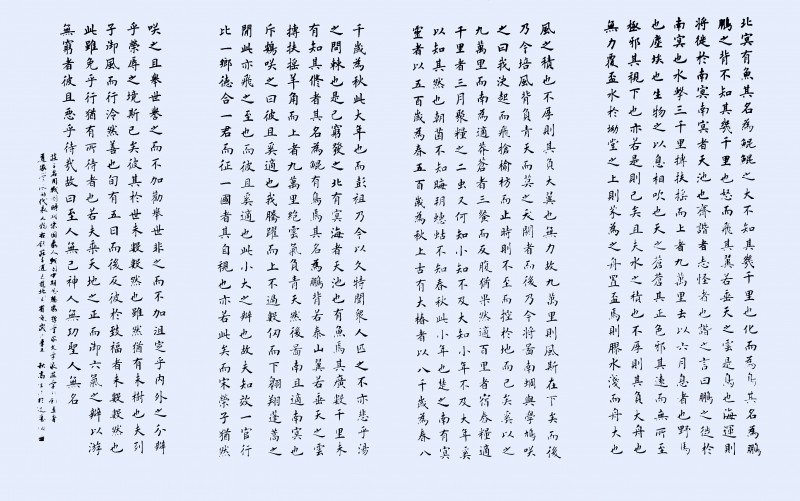 北冥有魚其名為鯤鯤之大不知其幾千里也化而為鳥其名為鵬
鵬之背不知其幾千里也怒而飛其翼若垂天之雲是鳥也海運則
將徙於南冥南冥者天池也齊諧者志怪者也諧之言曰鵬之徙於
南冥也水擊三千里摶扶搖而上者九萬里去以六月息者也野馬
也塵埃也生物之以息相吹也天之蒼蒼其正色邪其遠而無所至
極邪其視下也亦若是則已矣且夫水之積也不厚則其負大舟也
無力覆盃水於坳堂之上則芥為之舟置盃焉則膠水淺而舟大也
風之積也不厚則其負大翼也無力故九萬里則風斯在下矣而後
乃今培風背負青天而莫之夭閼者而後乃今將圖南蜩與學鳩笑
之曰我決起而飛搶榆枋而止時則不至而控於地而已矣奚以之
九萬里而南為適莽蒼者三餐而反腹猶果然適百里者宿舂糧適
千里者三月聚糧之二蟲又何知小知不及大知小年不及大年奚
以知其然也朝菌不知晦朔蟪蛄不知春秋此小年也楚之南有冥
靈者以五百歲為春五百歲為秋上古有大椿者以八千歲為春八
千歲為秋此大年也而彭祖乃今以久特聞眾人匹之不亦悲乎湯
之問棘也是已窮髮之北有冥海者天池也有魚焉其廣數千里未
有知其修者其名為鯤有鳥焉其名為鵬背若泰山翼若垂天之雲
摶扶搖羊角而上者九萬里絕雲氣負青天然後圖南且適南冥也
斥鴳笑之曰彼且奚適也我騰躍而上不過數仞而下翱翔蓬蒿之
間此亦飛之至也而彼且奚適也此小大之辯也故夫知效一官行
比一鄉德合一君而征一國者其自視也亦若此矣而宋榮子猶然
笑之且舉世譽之而不加勸舉世非之而不加沮定乎內外之分辯
乎榮辱之境斯已矣彼其於世未數數然也雖然猶有未樹也夫列
子御風而行泠然善也旬有五日而後反彼於致福者未數數然也
此雖免乎行猶有所待者也若夫乘天地之正而御六氣之辯以遊
無窮者彼且惡乎待哉故曰至人無己神人無功聖人無名